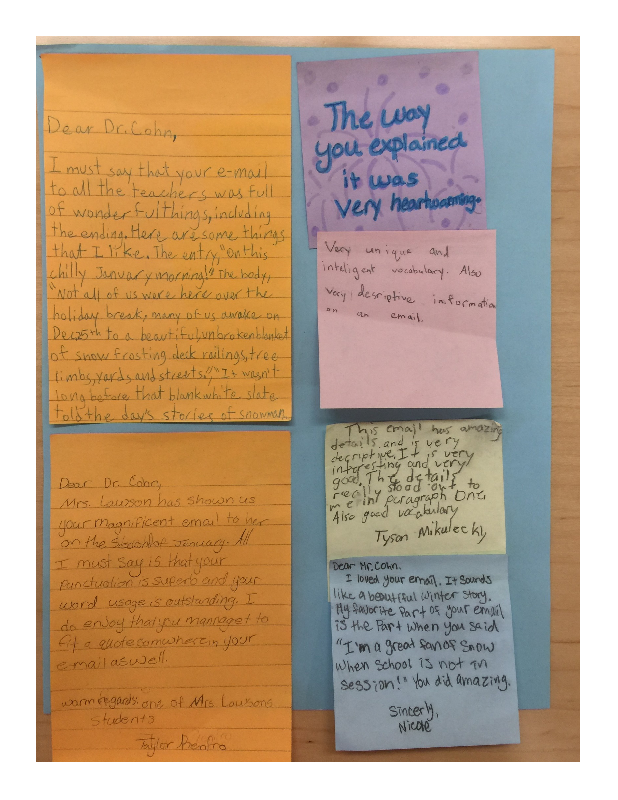 Dear Dr. Cohn,
I must say that your e-mail
to all the teachers was full
of wonderful things, including
the ending. Here are some things
that I like. The entry, "On this
chilly January morning!" The body,
"Not all of us were here over the
holiday break, many of us awake on
Dec 25th to a beautiful, unbroken blanket
of snow frosting desk railings, tree
limbs, yards and streets." "It wasn't
long before that blank white slate
told the day's stories of snowman
The way
you explained
it was
very heartwarming.
Very unique and
inteligent vocabulary. Also
very desriptive information
on an email.
This email has amazing
details and is very
decriptive. It is very
interesting and very
good. The details
really stood out to
me in paragraph one.
Also good vocabulary
Tyson Mikulecky
Dear Dr. Cohn,
Mrs. Lawson has shown us
your magnificent email to her
on the of January.
I must say is that your
punctuation is superb and your
word usage is outstanding. I
do enjoy that you managet to
fit a quote somwhere in your
e-mail as well.
warm regards: one of Mrs Lawsons
Students
Taylor
Dear Mr. Cohn.
I loved your email. It sounds
like a beautiful winter story.
My favorite part of your email
is the part when you said
"I'm a great fan of snow
when school is not in
session!" You did amazing.
Sincerly,
Nicole